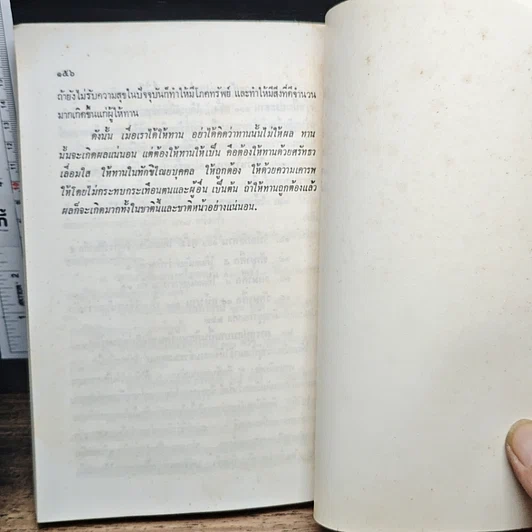 ๑๕๖
ถ้ายังไม่รับความสุขในปัจจุบันก็ทำให้มีโภคทรัพย์ และทำให้มีสิ่งที่ดีจำนวน
มากเกิดขึ้นแก่ผู้ให้ทาน
ดังนั้น เมื่อเราได้ให้ทาน อย่าได้คิดว่าทานนั้นไม่ให้ผล ทาน
นั้นจะเกิดผลแน่นอน แต่ต้องให้ทานให้เป็น คือต้องให้ทานด้วยศรัทธา
เลื่อมใส ให้ทานในทักขิไณยบุคคล ให้ถูกต้อง ให้ด้วยความเคารพ
ให้โดยไม่กระทบกระเทือนตนและผู้อื่น เป็นต้น ถ้าให้ทานถูกต้องแล้ว
ผลก็จะเกิดมากทั้งในชาตินี้และชาติหน้าอย่างแน่นอน.